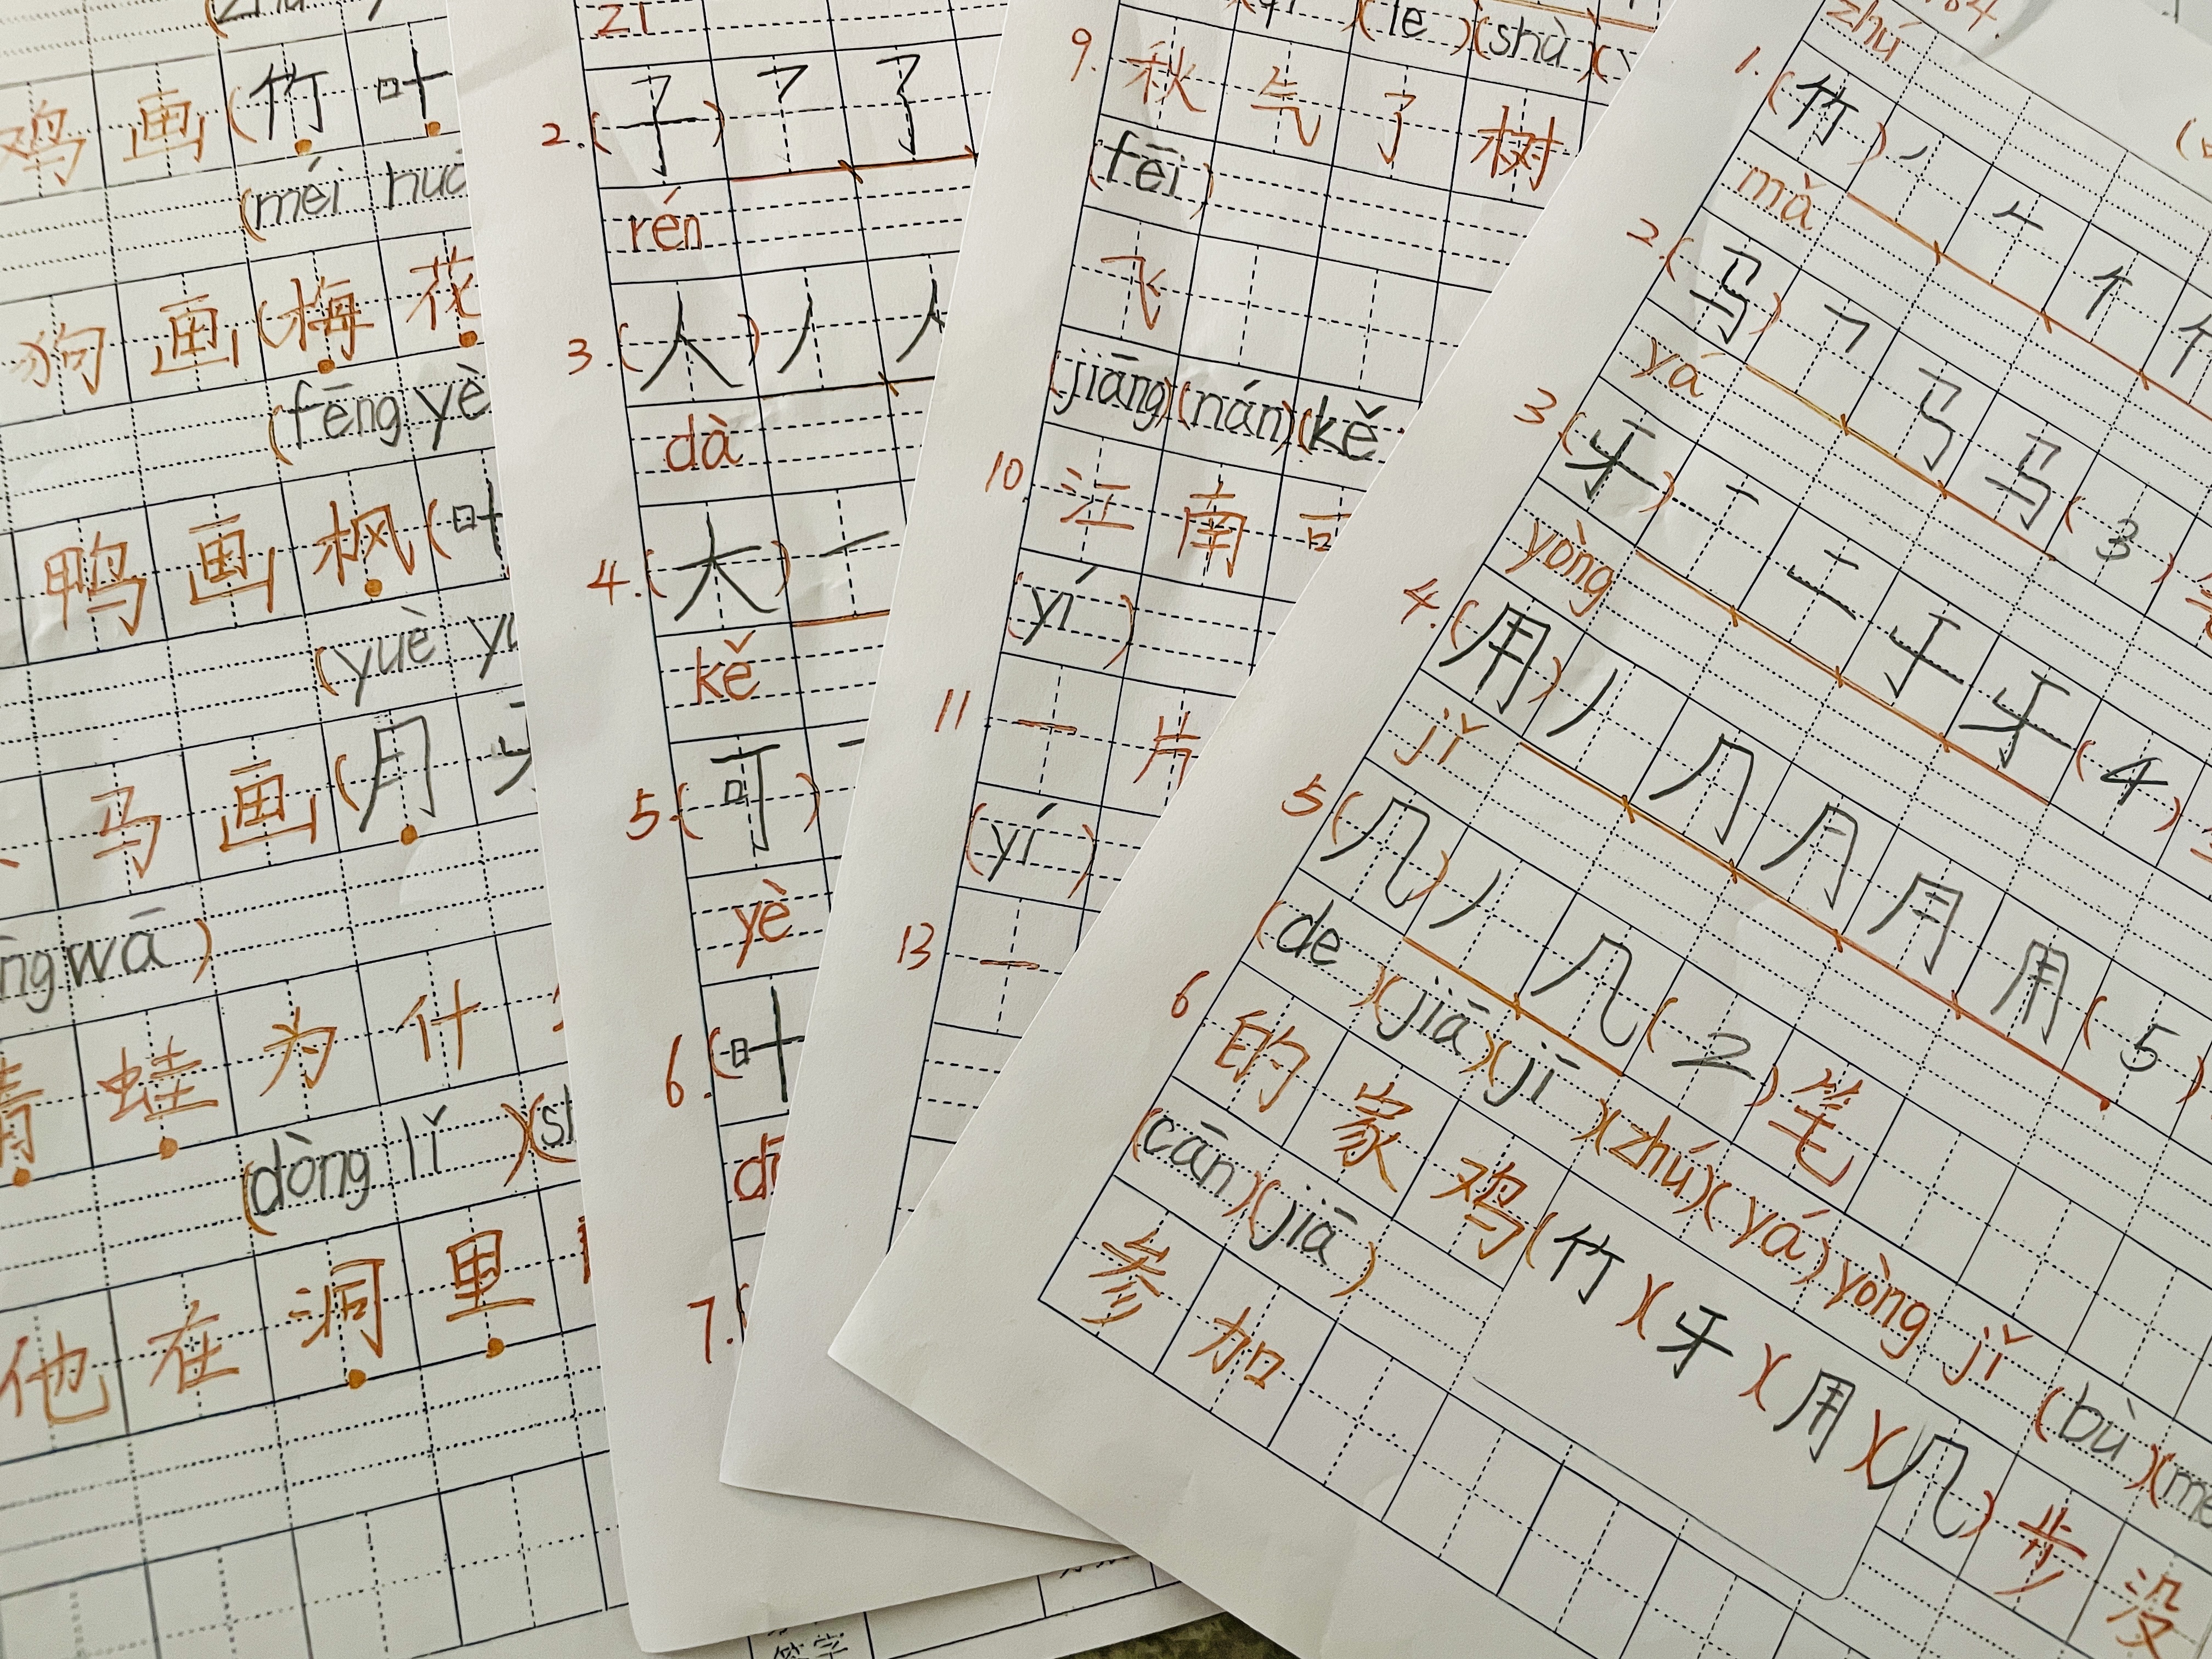 鸡 画 (竹 叶
(méi huā
狗 画 (梅 花
(fēng yè
鸭 画 枫 (叶
(yuè
马 画 (月 牙
wā)
青 蛙 为 什
(dòng lǐ)
他 在 洞 里
21
2. (子) 了 了
rén
3. (人) 丿 人
dà
4. (大) 一
kě
5. (可) 一
yè
6. (叶
7. (
(le) (shù)
9. 秋 气 了 树
(fēi)
飞
(jiāng) (nán) (kě
10 江 南 可
(yí)
11 一 片
(yí)
13 一
zhú
1. (竹) 丿 𠂉 个
mǎ
2. (马) ㇕ 马 马 (3)
yá
3. (牙) 一 二 于 牙 (4)
yòng
4. (用) 丿 ⺆ 月 用 用 (5)
jǐ
5 (几) 丿 几 (2) 笔
(de) (jiā) (jī) (zhú) (yá) yòng jǐ (bù)
6 的 家 鸡 (竹) (牙) (用) (几) 步 没
(cān) (jiā)
参 加